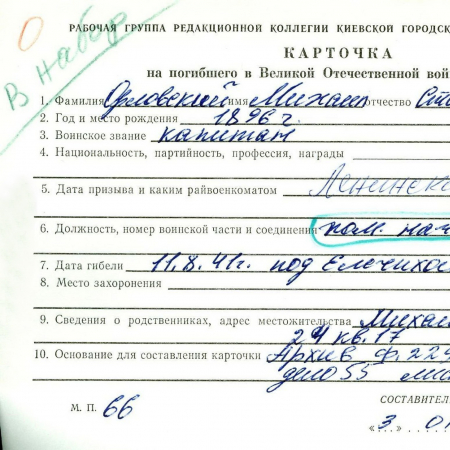 РАБОЧАЯ ГРУППА РЕДАКЦИОННОЙ КОЛЛЕГИИ КИЕВСКОЙ ГОРОДСК
О
В набор
КАРТОЧКА
на погибшего в Великой Отечественной вой
1. Фамилия Орловский имя Михаил отчество Ста
2. Год и место рождения 1896 г.
3. Воинское звание капитан
4. Национальность, партийность, профессия, награды
5. Дата призыва и каким райвоенкоматом Ленинск
6. Должность, номер воинской части и соединения пом. нач
7. Дата гибели 11.8.41г. под
8. Место захоронения
9. Сведения о родственниках, адрес местожительства Михай
24 кв. 17
10. Основание для составления карточки Архив ф. 229
дело 55
М. П. 66
СОСТАВИТЕЛ
«3» 01